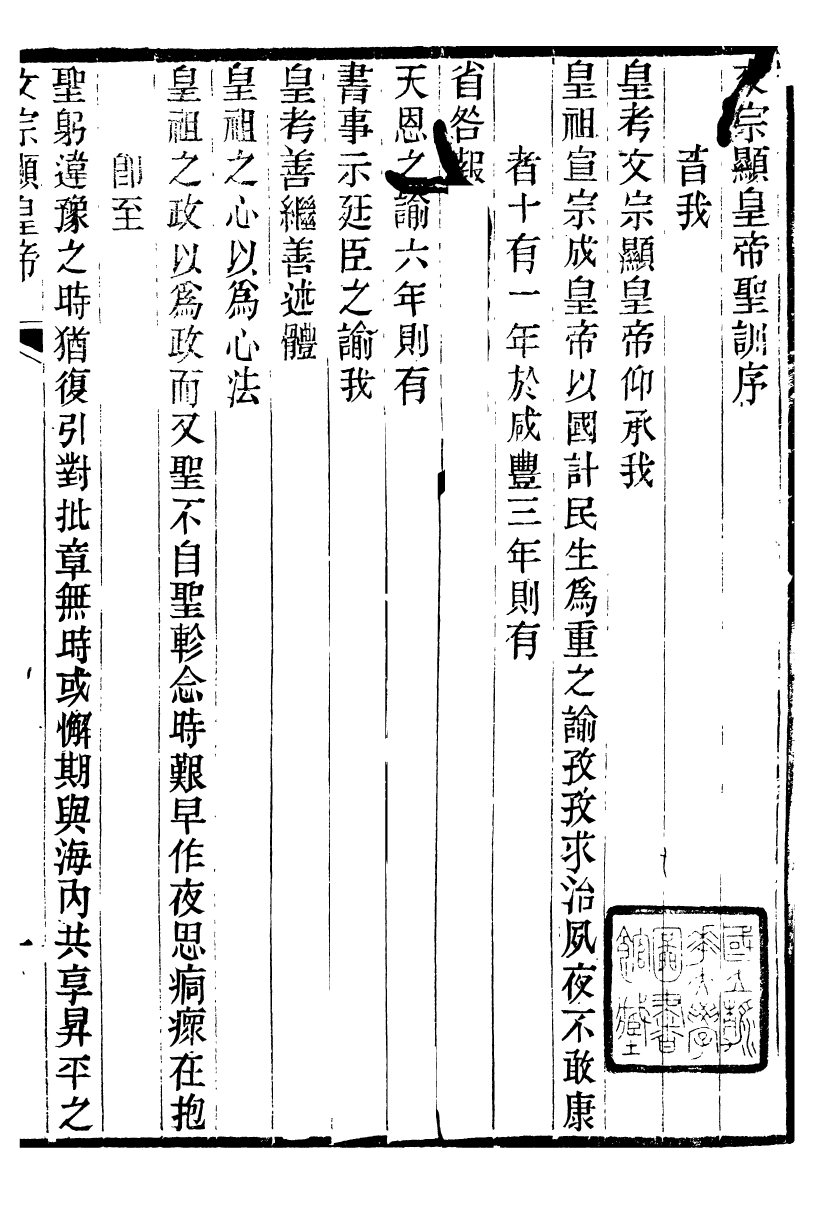 文宗顯皇帝聖訓序
昔我
皇考文宗顯皇帝仰承我
皇祖宣宗成皇帝以國計民生爲重之諭孜孜求治夙夜不敢康
者十有一年於咸豐三年則有
省咎報
天恩之諭六年則有
書事示廷臣之諭我
皇考善繼善述體
皇祖之心以爲心法
皇祖之政以爲政而又聖不自聖軫念時艱早作夜思痌瘝在抱
卽至
聖躬違豫之時猶復引對批章無時或懈期與海內共享昇平之
文宗顯皇帝
一
國立清
華大學
圖書
館藏